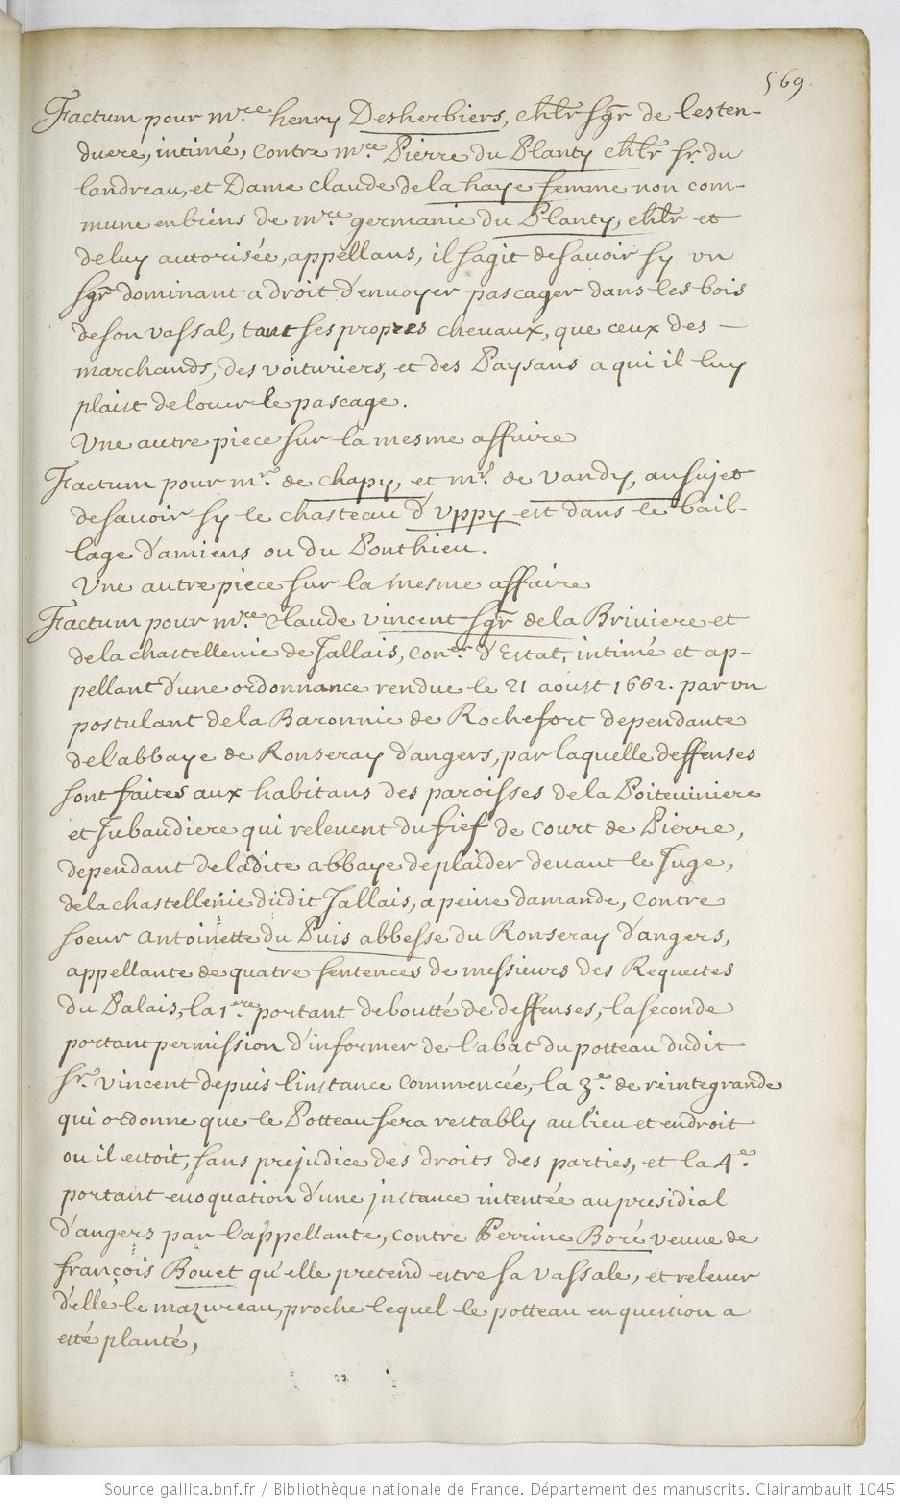 569.
Factum pour mre henry Desherbiers, chlr sgr de lesten-
duere, intimé, contre mre Pierre du Planty chlr sr. du
landreau, et Dame claude de la haye femme non com-
mune en biens de mre germanic du Planty, chlr et
de luy autorisée, appellans, il sagit de savoir sy un
sgr dominant a droit d'envoyer pascager dans les bois
de son vassal, tant ses propres chevaux, que ceux des –
marchands, des voituriers, et des Paysans a qui il luy
plaist de louer le pascage.
Une autre piece sur la mesme affaire
Factum pour mr. de chapy, et mr. de vandy, au sujet
de savoir sy le chasteau d'uppy est dans le bail-
lage d'amiens ou du Ponthieu.
Une autre piece sur la mesme affaire
Factum pour mre. Claude vincent sgr de la Briviere et
de la chastellenie de Jallais, coner. d'Estat, intimé et ap-
pellant d'une ordonnance rendue le 21 aoust 1662. par un
postulant de la Baronnie de Rochefort dependante
de l'abbaye de Ronseray d'angers, par laquelle deffenses
sont faites aux habitans des paroisses de la Poiteviniere
et Jubaudiere qui relevent du fief de Court de Pierre,
dependant de ladite abbaye de plaider devant le Juge,
de la chastellenie dudit Jallais, a peine damande, contre
soeur Antoinette du Puis abbesse du Ronseray d'angers,
appellante de quatre sentences de messieurs des Requestes
du Palais, la 1ere portant deboutté de deffenses, la seconde
portant permission d'informer de l'abat du potteau dudit
sr. vincent depuis l'instance commencée, la 3e. de reintegrande
qui ordonne que le Potteau sera restably au lieu et endroit
ou il estoit, sans prejudice des droits des parties, et la 4e.
portant evoquation d'une instance intentée au presidial
d'angers par l'appellante, contre Perrine Boré veuve de
françois Bouet qu'elle pretend estre sa vassale, et relever
d'elle le mazureau, proche lequel le potteau en question a
esté planté,
Source gallica.bnf.fr / Bibliothèque nationale de France. Département des manuscrits. Clairambault 1045